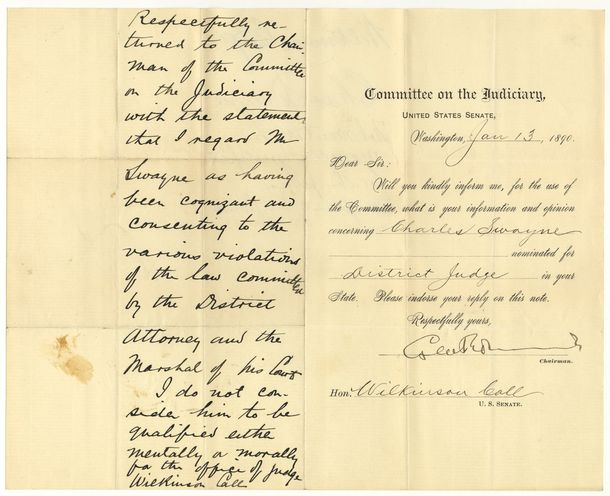 Committee on the Judiciary,
UNITED STATES SENATE,
Washington, Jan 13, 1890.
Dear Sir:
Will you kindly inform me, for the use of
the Committee, what is your information and opinion
concerning Charles Swayne
nominated for
District Judge in your
State. Please indorse your reply on this note.
Respectfully yours,
Chairman.
Hon. Wilkinson Call
U. S. SENATE.
Respectfully re-
turned to the Chair
man of the Committee
on the Judiciary
with the statement
that I regard Mr
Swayne as having
been cognizant and
consenting to the
various violations
of the law committed
by the District
Attorney and the
Marshal of his Court
I do not con-
sider him to be
qualified either
mentally or morally
for the office of Judge
Wilkinson Call